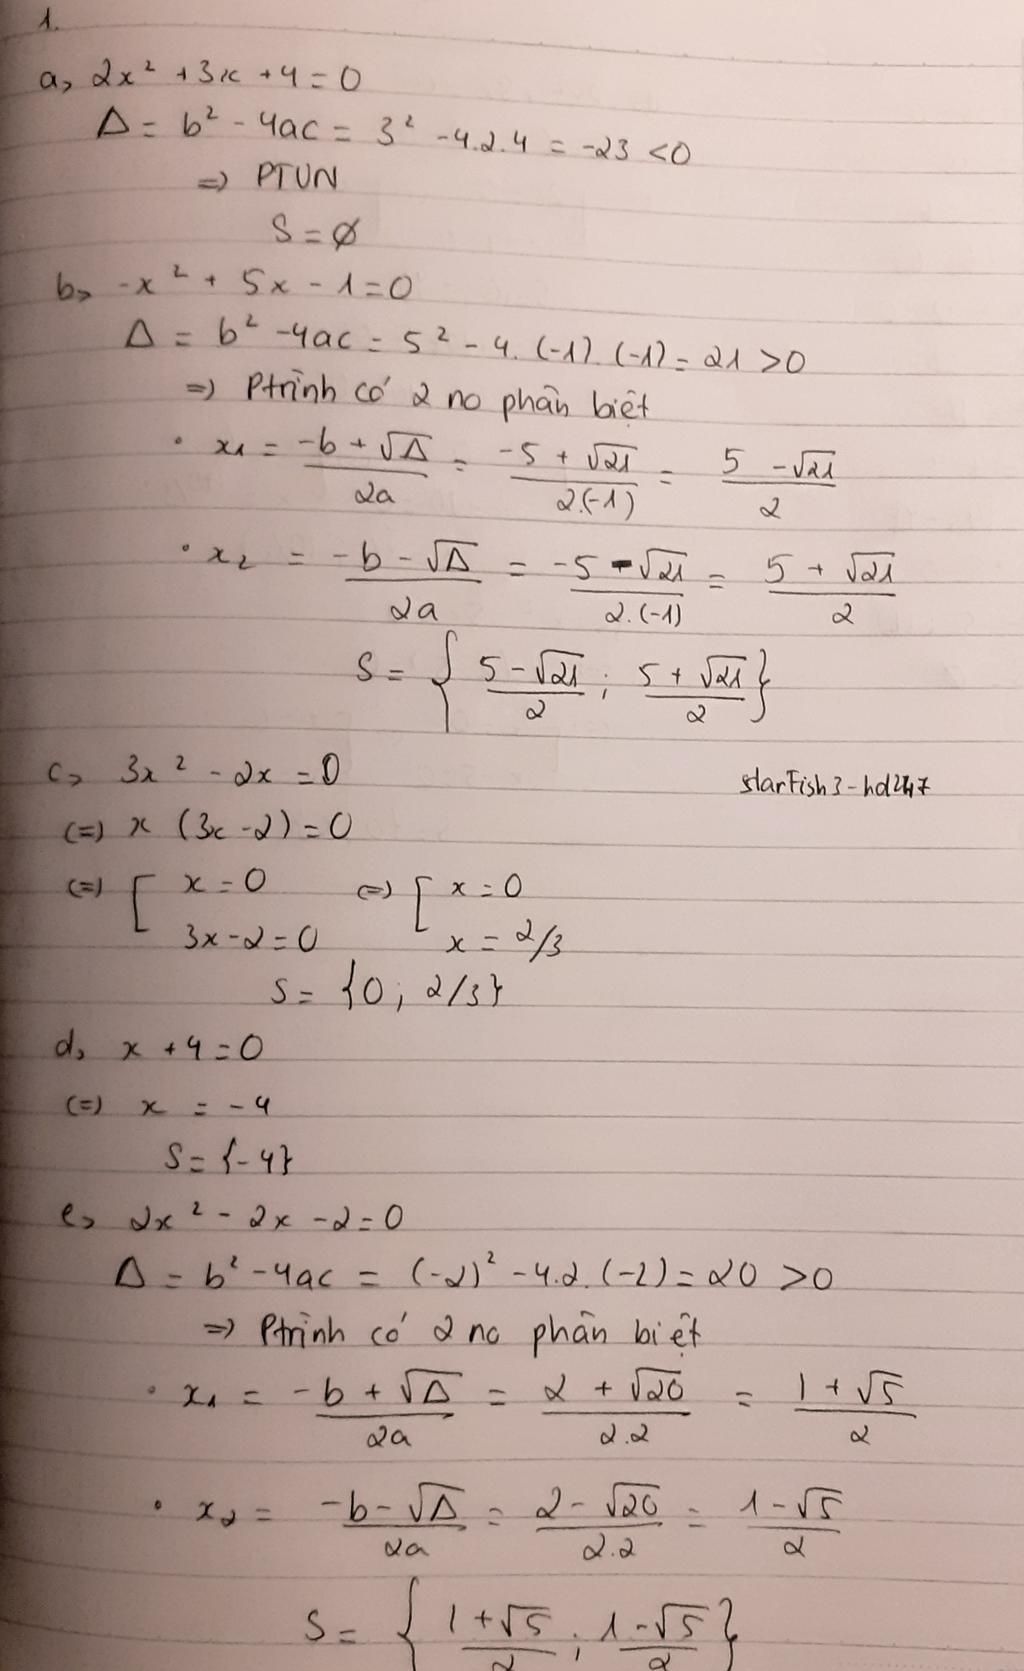 1.
a, 2x² + 3x + 4 = 0
Δ = b² - 4ac = 3² - 4.2.4 = -23 < 0
=> PTVN
S = Ø
b, -x² + 5x - 1 = 0
Δ = b² - 4ac = 5² - 4.(-1).(-1) = 21 > 0
=> Ptrình có 2 no phân biệt
• x₁ = (-b + √Δ)/2a = (-5 + √21)/2.(-1) = (5 - √21)/2
• x₂ = (-b - √Δ)/2a = (-5 - √21)/2.(-1) = (5 + √21)/2
S = {(5 - √21)/2 ; (5 + √21)/2}
c, 3x² - 2x = 0
starFish3-hd247
(=) x (3x - 2) = 0
(=) [ x = 0 (=) [ x = 0
3x - 2 = 0 x = 2/3
S = {0 ; 2/3}
d, x + 4 = 0
(=) x = -4
S = {-4}
e, 2x² - 2x - 2 = 0
Δ = b² - 4ac = (-2)² - 4.2.(-2) = 20 > 0
=> Ptrình có 2 no phân biệt
• x₁ = (-b + √Δ)/2a = (2 + √20)/2.2 = (1 + √5)/2
• x₂ = (-b - √Δ)/2a = (2 - √20)/2.2 = (1 - √5)/2
S = {(1 + √5)/2 ; (1 - √5)/2}